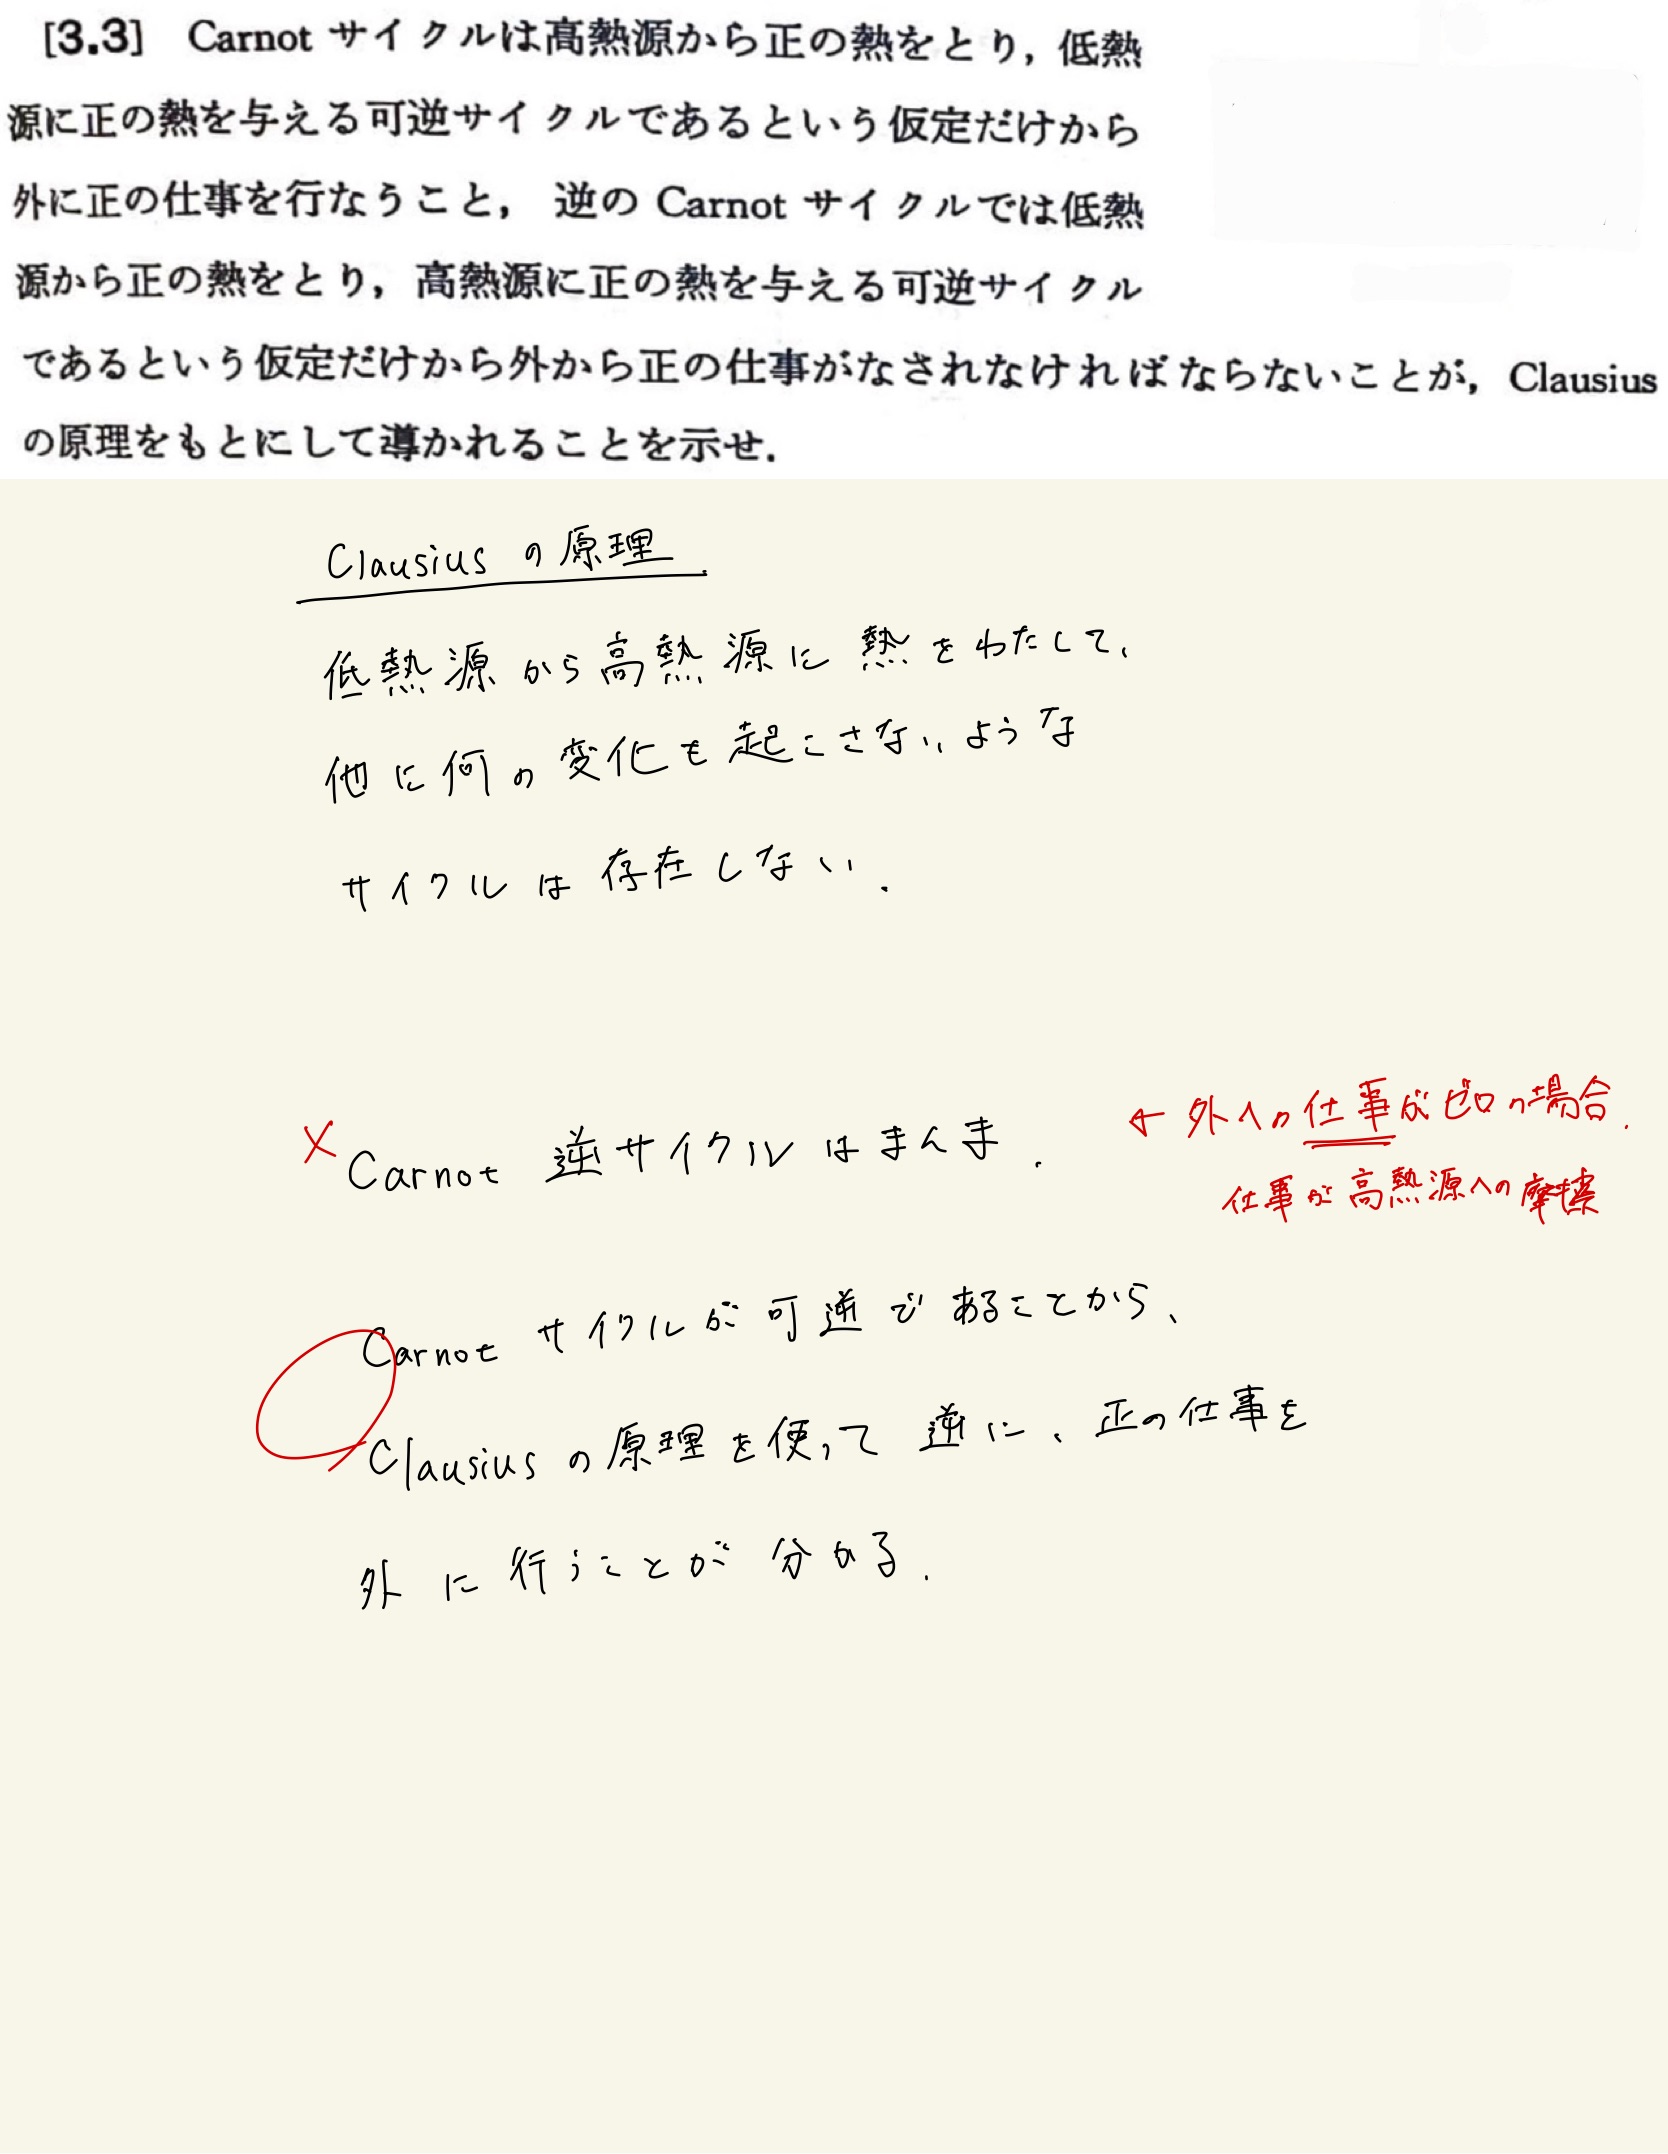 [3.3] Carnot サイクルは高熱源から正の熱をとり，低熱
源に正の熱を与える可逆サイクルであるという仮定だけから
外に正の仕事を行なうこと， 逆の Carnot サイクルでは低熱
源から正の熱をとり，高熱源に正の熱を与える可逆サイクル
であるという仮定だけから外から正の仕事がなされなければならないことが，Clausius
の原理をもとにして導かれることを示せ．
Clausius の原理
低熱源から高熱源に熱をわたして、
他に何の変化も起こさないような
サイクルは存在しない.
× Carnot 逆サイクルはまんま.
← 外への仕事がゼロの場合.
仕事が高熱源への摩擦
Carnot サイクルが可逆であることから、
Clausius の原理を使って逆に、正の仕事を
外に行うことが分かる.